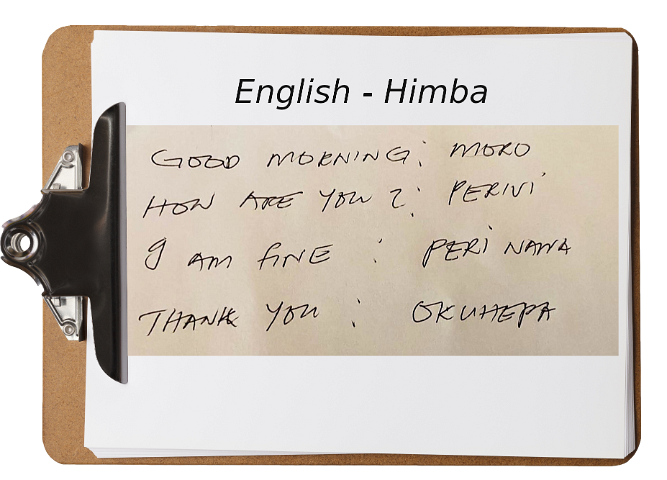 English - Himba
GOOD MORNING: MORO
HOW ARE YOU?: PERIVI
I AM FINE : PERI NAWA
THANK YOU : OKUHEPA